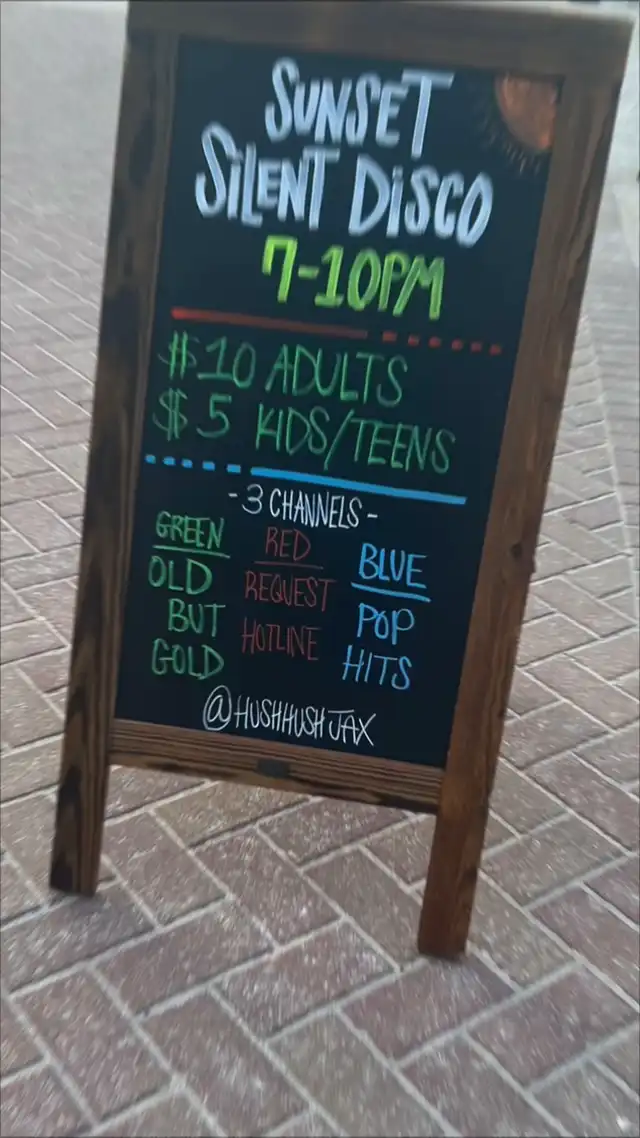 SUNSET
SILENT DISCO
7-10PM
$10 ADULTS
$5 KIDS/TEENS
-3 CHANNELS-
GREEN
OLD
BUT
GOLD
RED
REQUEST
HOTLINE
BLUE
POP
HITS
@HUSHHUSHJAX